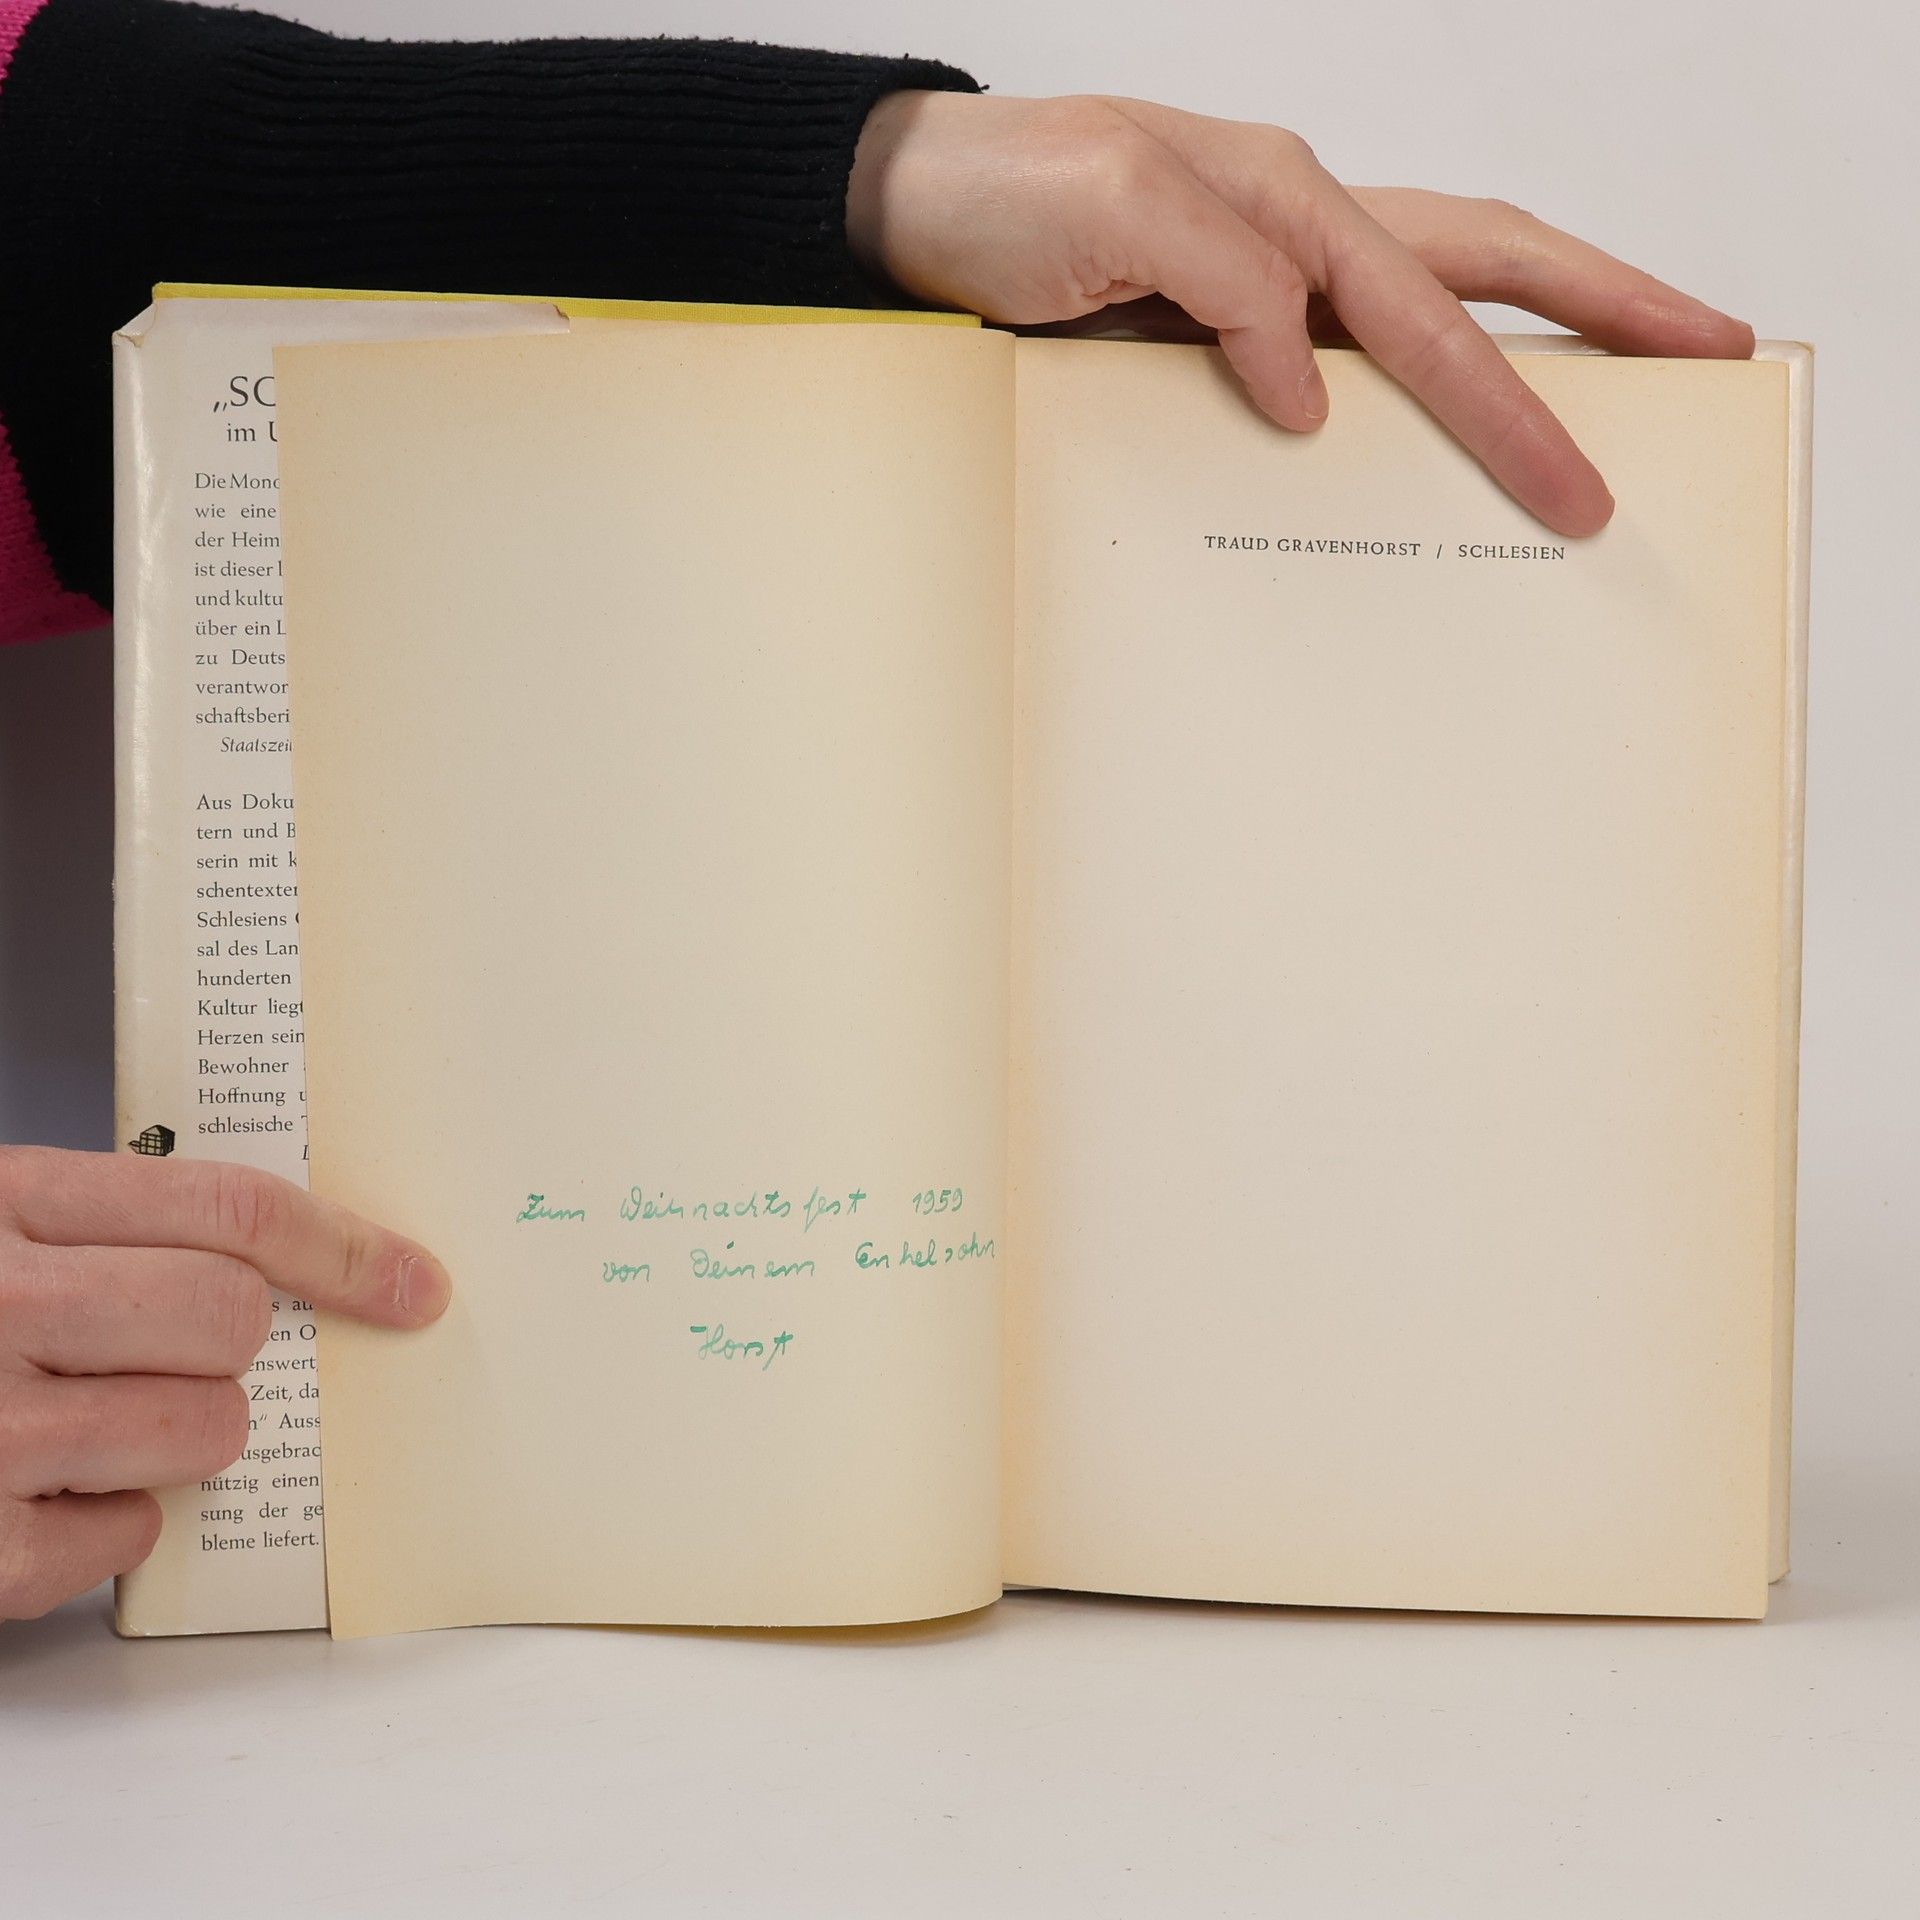 „SC
im U
Die Mono
wie eine
der Heim
ist dieser l
und kultu
über ein L
zu Deuts
verantwor
schaftsberi
Staatszeit
Aus Doku
tern und B
serin mit k
schentexten
Schlesiens
sal des Lan
hunderten
Kultur liegt
Herzen sein
Bewohner
Hoffnung u
schlesische T
s au
en O
enswert,
Zeit, da
n" Auss
usgebrac
nützig einen
sung der ge
bleme liefert.
Zum Weihnachtsfest 1959
von Deinem Enkelsohn
Horst
TRAUD GRAVENHORST / SCHLESIEN